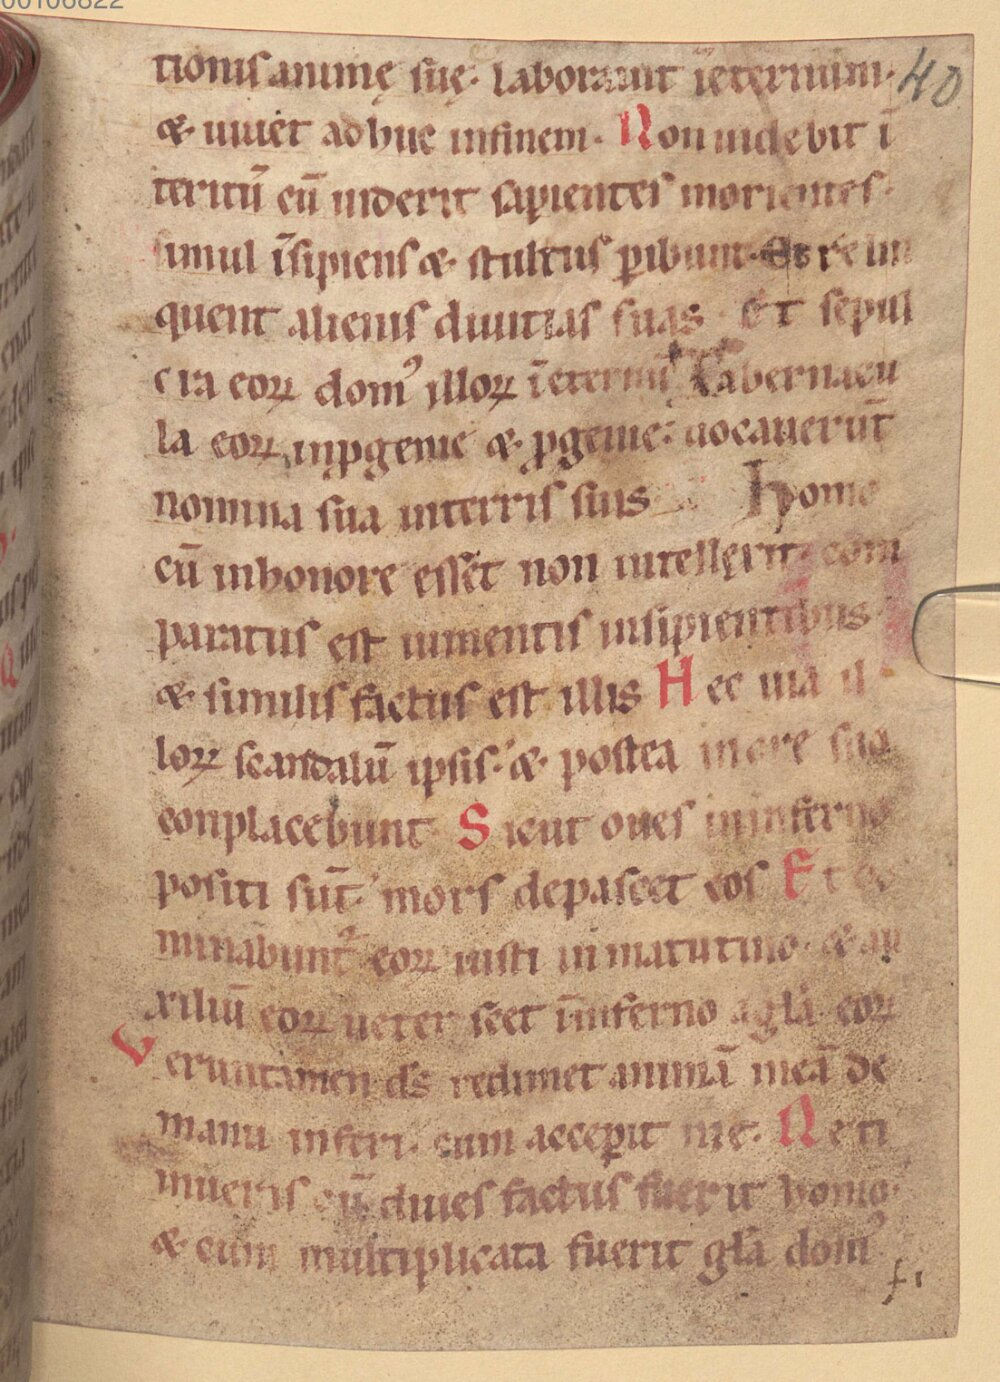 00106822
40
tionis animę suę· laborauit īeternum·
& uiuet adhuc infinem· Non uidebit ī
teritū cū uiderit sapientes morientes·
simul īsipiens & stultus ꝑibunt· Et relin
quent alienis diuitias suas Et sepul
cra eoꝝ domꝰ illoꝝ īeternū Tabernacu
la eoꝝ inꝓgenie & ꝓgenie: uocauerūt
nomina sua interris suis Homo
cū inhonore esset non intellexit com
paratus est iumentis insipientibus
& similis factus est illis Hec uia il
loꝝ scandalū ipsis· & postea inore suo
conplacebunt Sicut oues ininferno
positi sūt mors depascet eos Et do
minabunt᷑ eoꝝ iusti inmatutino· & au
xiliū eoꝝ ueterescet īinferno aglā eoꝝ
Veruntamen ds̄ redimet animā meā de
manu inferi· cum acceꝑit me· Ne ti
mueris cū diues factus fuerit homo·
& cum multiplicata fuerit glā domꝰ